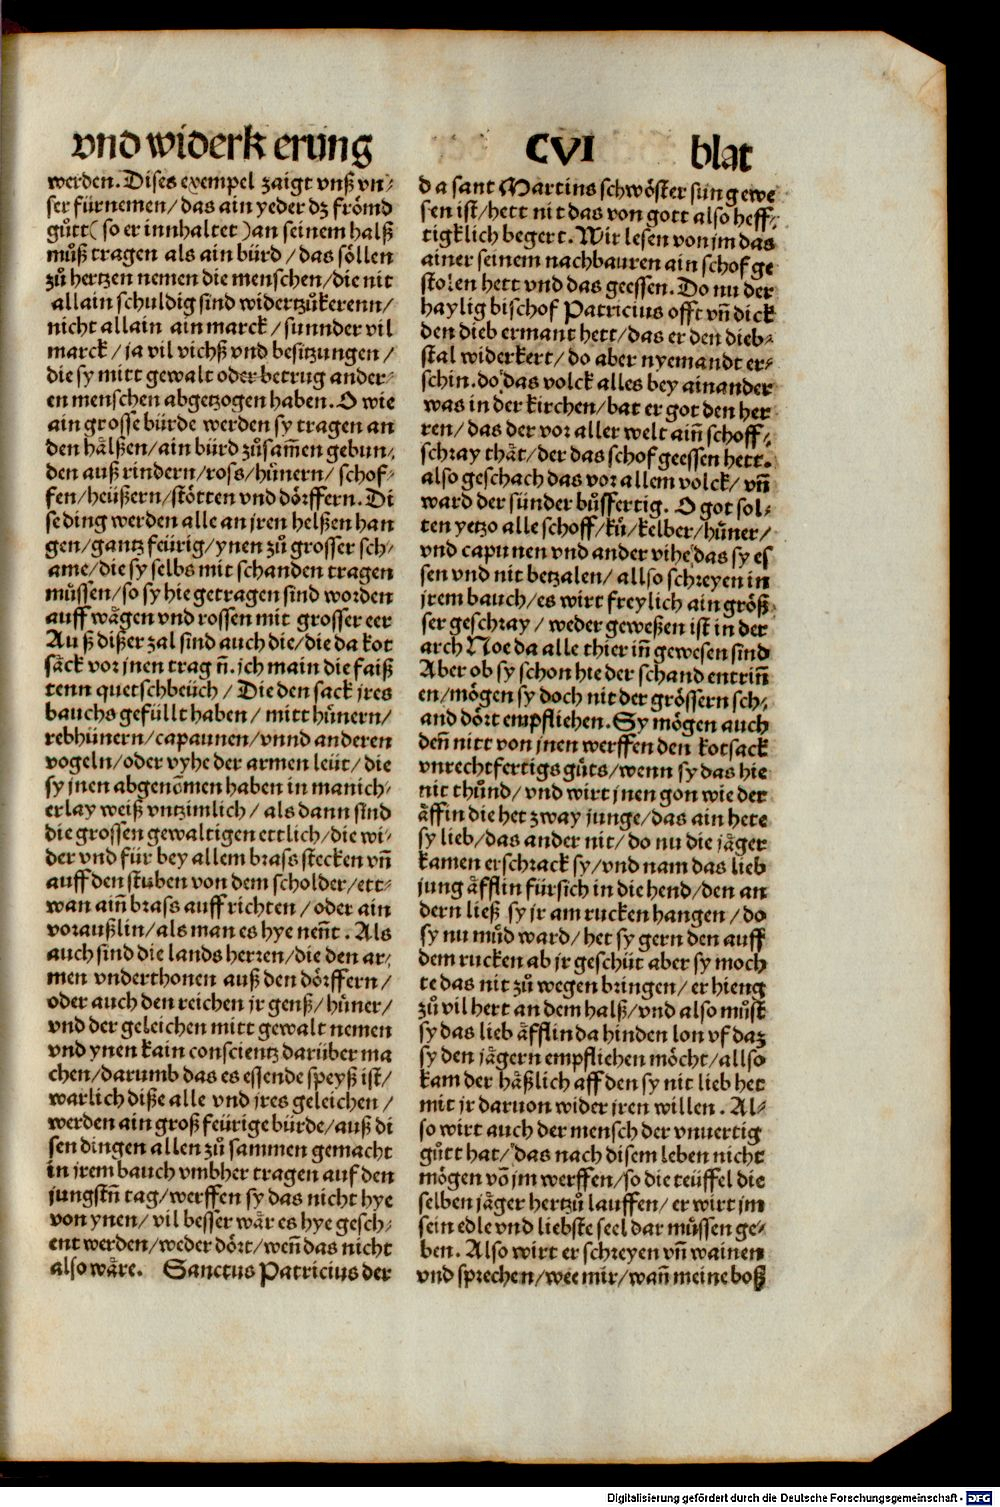 vnd widerk erung CVI blat
werden. Dises exempel zaigt vnß vn⸗
ser fürnemen/ das ain yeder dz frömd
gůtt( so er innhaltet )an seinem halß
můß tragen als ain bürd /das söllen
zů hertzen nemen die menschen/die nit
allain schuldig sind widertzůkerenn/
nicht allain ain marck/sunnder vil
marck / ja vil vichß vnd besitzungen /
die sy mitt gewalt oder betrug ander⸗
en menschen abgetzogen haben. O wie
ain grosse bürde werden sy tragen an
den hälßen/ain bürd zůsam̄en gebun⸗
den auß rindern/ross/hünern/ schof⸗
fen/heüßern/stötten vnd dörffern. Di
se ding werden alle an jren helßen han
gen/gantz feürig/ynen zů grosser sch⸗
ame/die sy selbs mit schanden tragen
müssen/so sy hie getragen sind worden
auff wägen vnd rossen mit grosser eer
Au ß dißer zal sind auch die/die da kot
säck vor jnen trag n̄. jch main die faiß
tenn quetschbeüch / Die den sack jres
bauchs gefüllt haben/ mitt hünern/
rebhünern/capaunen/vnnd anderen
vogeln/oder vyhe der armen leüt/ die
sy jnen abgenōmen haben in manich⸗
erlay weiß vntzimlich/ als dann sind
die grossen gewaltigen ettlich/die wi⸗
der vnd für bey allem brass stecken vn̄
auff den stuben von dem scholder/ett⸗
wan ain̄ brass auff richten /oder ain
voraußlin/als man es hye nen̄t . Als
auch sind die lands herren/die den ar⸗
men vnderthonen auß den dörffern/
oder auch den reichen jr genß/hüner/
vnd der geleichen mitt gewalt nemen
vnd ynen kain conscientz darüber ma
chen/darumb das es essende speyß ist/
warlich diße alle vnd jres geleichen /
werden ain groß feürige bürde/auß di
sen dingen allen zů sammen gemacht
in jrem bauch vmbher tragen auf den
jungstn̄ tag/werffen sy das nicht hye
von ynen/ vil besser wär es hye gesch⸗
ent werden/weder dört/wen̄ das nicht
also wäre. Sanctus Patricius der
d a sant Martins schwöster sün gewe
sen ist/hett nit das von gott also heff⸗
tigklich begert. Wir lesen von jm das
ainer seinem nachbauren ain schof ge
stolen hett vnd das geessen. Do nu der
haylig bischof Patricius offt vn̄ dick
den dieb ermant hett/das er den dieb⸗
stal widerkert/ do aber nyemandt er⸗
schin. do das volck alles bey ainander
was in der kirchen/bat er got den her
ren/ das der vor aller welt ain̄ schoff⸗
schray thät/der das schof geessen hett.
also geschach das vor allem volck/ vn̄
ward der sünder bůssfertig. O got sol⸗
ten yetzo alle schoff/kü/kelber/hüner/
vnd capunen vnd ander vihe das sy es
sen vnd nit betzalen/ allso schreyen in
jrem bauch/es wirt freylich ain größ
ser geschray / weder geweßen ist in der
arch Noe da alle thier in̄ gewesen sind
Aber ob sy schon hie der schand entrin̄
en/mögen sy doch nit der grössern sch⸗
and dört empfliehen. Sy mögen auch
den̄ nitt von jnen werffen den kotsack
vnrechtfertigs gůts/wenn sy das hie
nit thůnd/ vnd wirt jnen gon wie der
äffin die het zway junge/das ain hete
sy lieb/das ander nit/ do nu die jäger
kamen erschrack sy/vnd nam das lieb
jung äfflin fürsich in die hend/den an
dern ließ sy jr am rucken hangen /do
sy nu müd ward/het sy gern den auff
dem rucken ab jr geschüt aber sy moch
te das nit zů wegen bringen/ er hieng
zů vil hert an dem halß/vnd also můst
sy das lieb äfflin da hinden lon vf daz
sy den jägern empfliehen möcht/allso
kam der häßlich aff den sy nit lieb het
mit jr daruon wider jren willen . Al⸗
so wirt auch der mensch der vnuertig
gůtt hat/ das nach disem leben nicht
mögen vō jm werffen/so die teüffel die
selben jäger hertzů lauffen/ er wirt jm
sein edle vnd liebste seel dar müssen ge⸗
ben. Also wirt er schreyen vn̄ wainen
vnd sprechen/wee mir/wan̄ meine boß
Digitalisierung gefördert durch die Deutsche Forschungsgemeinschaft - DFG